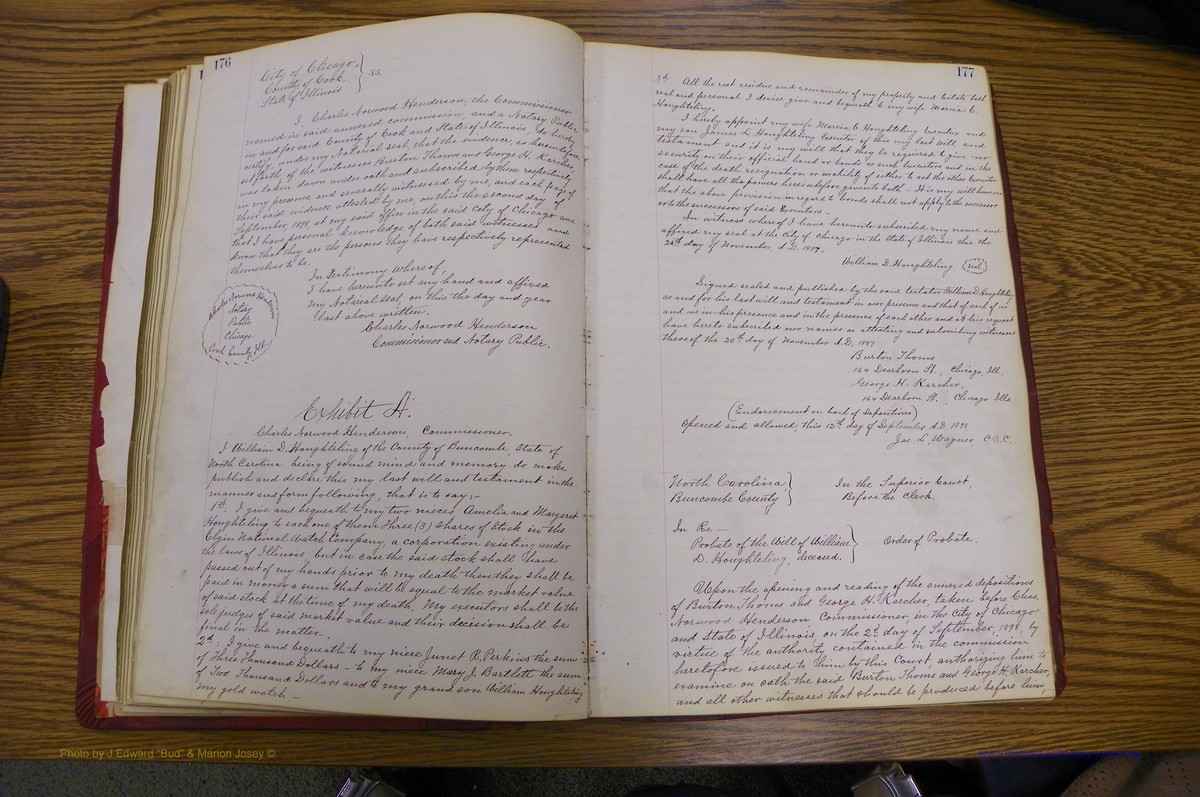 176
City of Chicago,
County of Cook
State of Illinois
} ss.
I, Charles Norwood Henderson, the Commissioner
named in said annexed commission, and a Notary Public
in and for said County of Cook and State of Illinois, do hereby
certify under my Notarial seal, that the evidence, as hereinbefore
set forth, of the witnesses Burton Thoms and George H. Karcher
was taken down under oath and subscribed by them respectively
in my presence and severally witnessed by me, and each page of
their said evidence attested by me, on this the second day of
September, 1898, at my said office in the said City of Chicago and
that I have personal knowledge of both said witnesses and
know that they are the persons they have respectively represented
themselves to be.
In Testimony Whereof,
I have hereunto set my hand and affixed
my Notarial Seal, on this the day and year
last above written.
Charles Norwood Henderson
Commissioner and Notary Public.
Charles Norwood Henderson
Notary
Public
Chicago
Cook County, Ill.
Exhibit A.
Charles Norwood Henderson, Commissioner.
I William D. Houghteling of the County of Buncombe, State of
North Carolina being of sound mind and memory do make
publish and declare this my last will and testament in the
manner and form following, that is to say:-
1st: I give and bequeath to my two nieces, Amelia and Margaret
Houghteling to each one of them Three (3) shares of Stock in the
Elgin National Watch Company, a corporation existing under
the laws of Illinois, but in case the said stock shall have
passed out of my hands prior to my death then they shall be
paid in money a sum that will be equal to the market value
of said stock at the time of my death. My executors shall be the
sole judges of said market value and their decision shall be
final in the matter.
2d: I give and bequeath to my niece Junet R. Perkins the sum
of Three Thousand Dollars - to my niece Mary J. Bartlett the sum
of Two Thousand Dollars and to my grand son William Houghteling
my gold watch -
177
3d All the rest residue and remainder of my property and Estate both
real and personal I devise give and bequeath to my wife Marcia E.
Houghteling.
I hereby appoint my wife Marcia E. Houghteling Executrix and
my son James L. Houghteling Executor of this my last will and
testament and it is my will that they be required to give no
security on their official bond or bonds as such Executors and in the
case of the death resignation or inability of either to act the other Executor
shall have all the powers hereinbefore given to both. It is my will however
that the above provision in regard to bonds shall not apply to the successor
or to the successors of said Executors -
In witness whereof I have hereunto subscribed my name and
affixed my seal at the City of Chicago in the State of Illinois this the
20th day of November, A.D. 1897.
William D. Houghteling (seal)
Signed sealed and published by the said testator William D. Houghteling
as and for his last will and testament in our presence and that of each of us
and we in his presence and in the presence of each other and at his request
have hereto subscribed our names as attesting and subscribing witnesses
thereof the 20th day of November A.D. 1897
Burton Thoms
164 Dearborn St., Chicago, Ill.
George H. Karcher,
164 Dearborn St. Chicago Ills
(Endorsement on back of Depositions)
Opened and allowed this 12th day of September A.D. 1898
Jas. L. Wagner, C.S.C.
North Carolina
Buncombe County
}
In the Superior Court,
Before the Clerk.
In Re -
Probate of the Will of William
D. Houghteling, deceased.
}
Order of Probate.
Upon the opening and reading of the annexed depositions
of Burton Thoms and George H. Karcher taken before Chas.
Norwood Henderson, Commissioner, in the City of Chicago
and State of Illinois, on the 2d day of September, 1898, by
virtue of the authority contained in the commission
heretofore issued to him by this Court, authorizing him to
examine on oath the said Burton Thoms and George H. Karcher,
and all other witnesses that should be produced before him,
Photo by J Edward "Bud" & Marion Josey ©